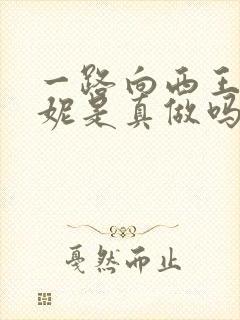 一路向西王
妮是真做吗
戛然而止